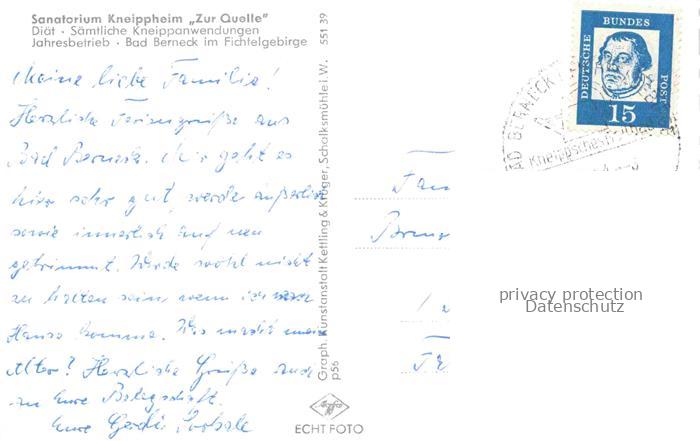 Sanatorium Kneippheim „Zur Quelle"
Diät · Sämtliche Kneippanwendungen
Jahresbetrieb · Bad Berneck im Fichtelgebirge
Meine liebe Familie!
Herzliche Feriengrüße aus
Bad Berneck. Mir geht es
hier sehr gut, werde äußerlich
sowie innerlich auf neu
getrimmt. Werde wohl nicht
zu halten sein wenn ich
Hause komme. Was macht mein
Alter? Herzliche Grüße auch
an Eure Belegschaft.
Eure
Graph. Kunstanstalt Kettling & Krüger, Schalksmühle i. W. 551 39
p56
ECHT FOTO
DEUTSCHE BUNDES POST
15
BAD BERNECK
Fam
privacy protection
Datenschutz